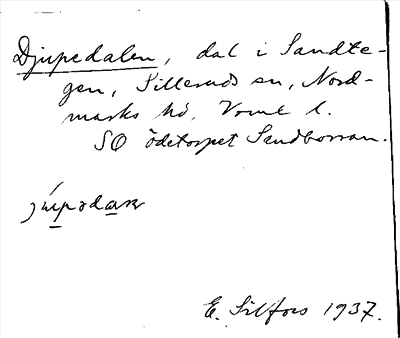 Djupedalen, dal i Sandte-
gen, Silleruds sn, Nord-
marks hd, Vrml l.
SO ödetorpet Sandborran.
E. Silfors 1937.